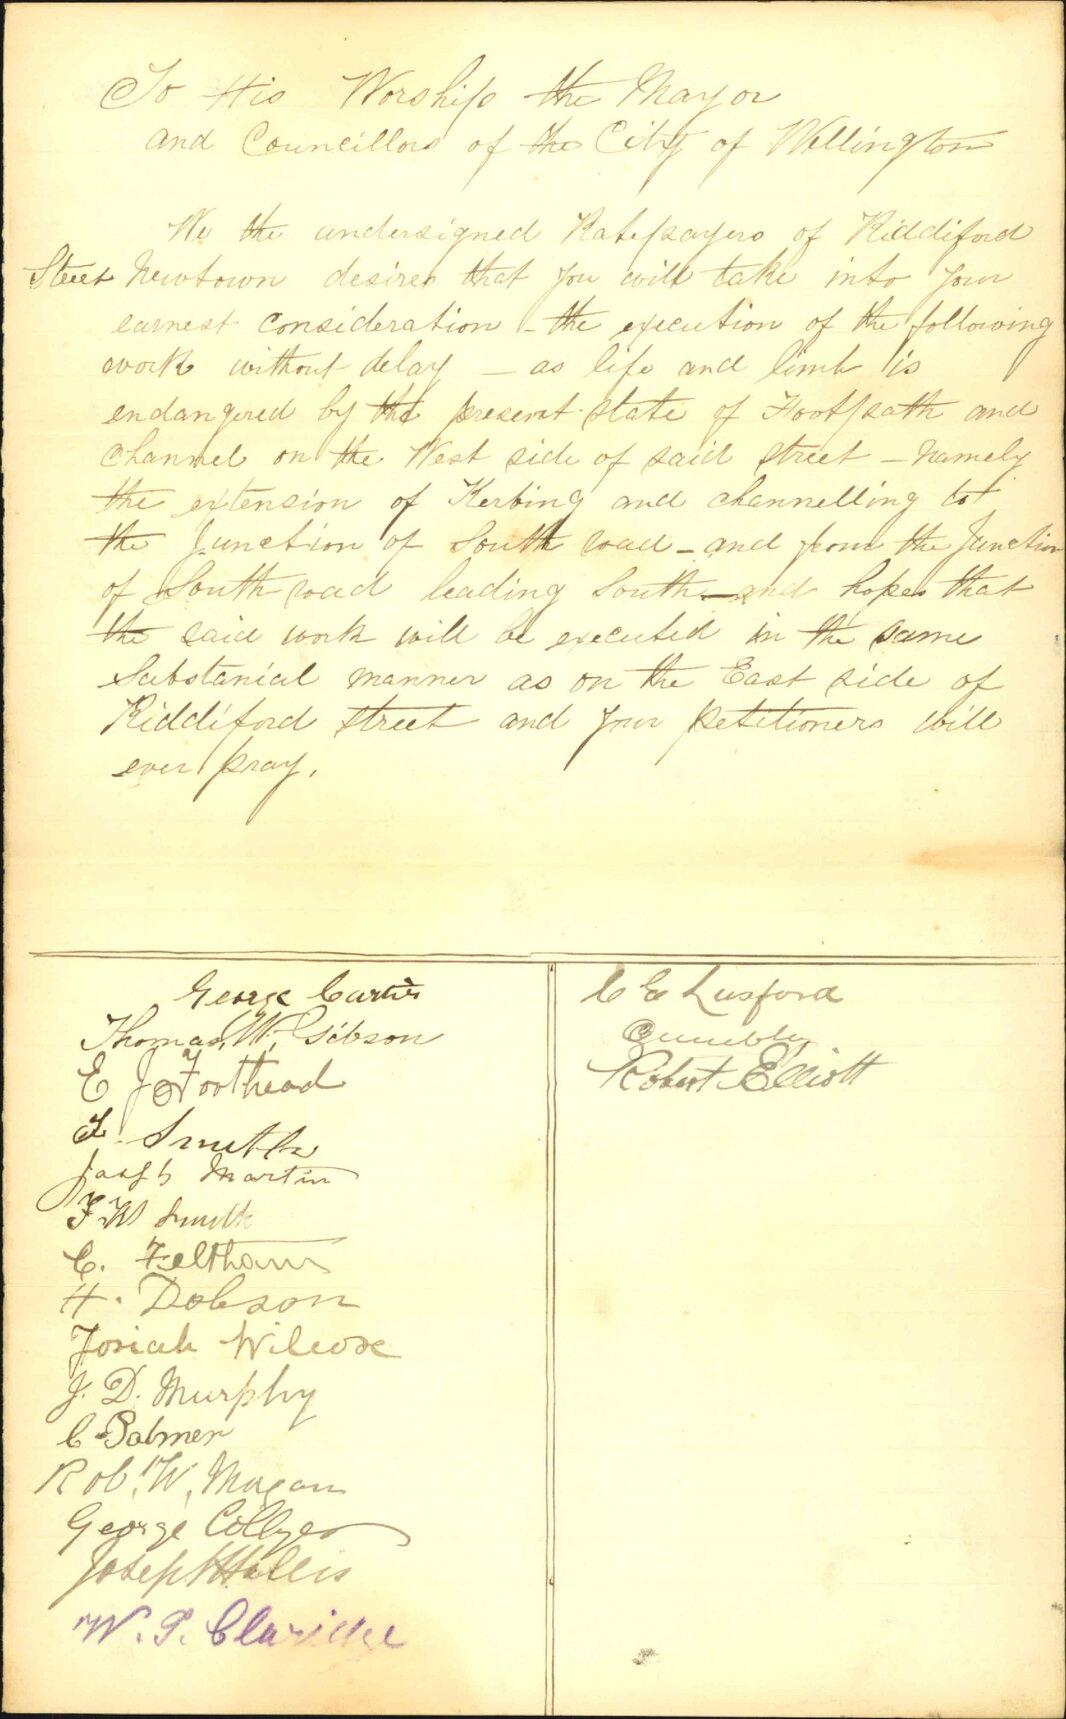 To His Worship the Mayor
and Councillors of the City of Wellington
We the undersigned Ratepayers of Riddiford
Street Newtown desires that you will take into your
earnest consideration - the execution of the following
work without delay - as life and limb is
endangered by the present state of Footpath and
channel on the West side of said street - namely
the extension of Kerbing and channelling to
the Junction of South road - and from the Junction
of South road leading South - and hopes that
the said work will be executed in the same
Substanial manner as on the East side of
Riddiford street and your petitioners will
ever pray.
George Carter
Thomas W. Gibson
E J Foothead
Smith
Joseph Martin
F W Smith
C. Feltham
H. Dobson
Josiah Wilcox
J. D. Murphy
C Palmer
Rob. W.
George Collyer
Joseph Hollis
W. P. Claridge
C E Luxford
Robert Elliott